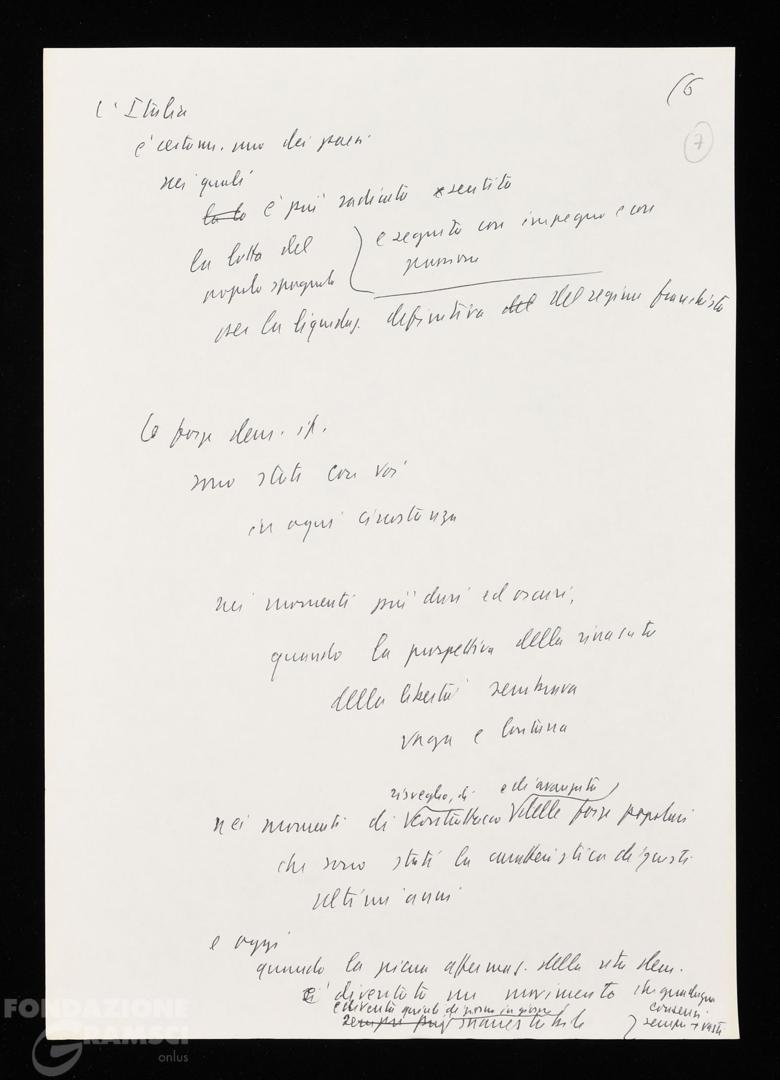 (6
7
L'Italia
è certam. uno dei paesi
nei quali
la lo è più radicato e sentito
la lotta del
popolo spagnolo
e seguita con impegno e con
passione
per la liquidaz. definitiva del del regime franchista
Le forze dem. it.
sono state con voi
in ogni circostanza
nei momenti più duri ed oscuri,
quando la prospettiva della rinascita
della libertà sembrava
vaga e lontana
risveglio, di e di avanzata
nei momenti di contrattacco delle forze popolari
che sono stati la caratteristica di questi
ultimi anni
e oggi
quando la piena affermaz. della vita dem.
è diventato un movimento che guadagna
e diventa quindi di giorno in giorno consensi
sempre più sempre + vasti
FONDAZIONE
GRAMSCI
onlus